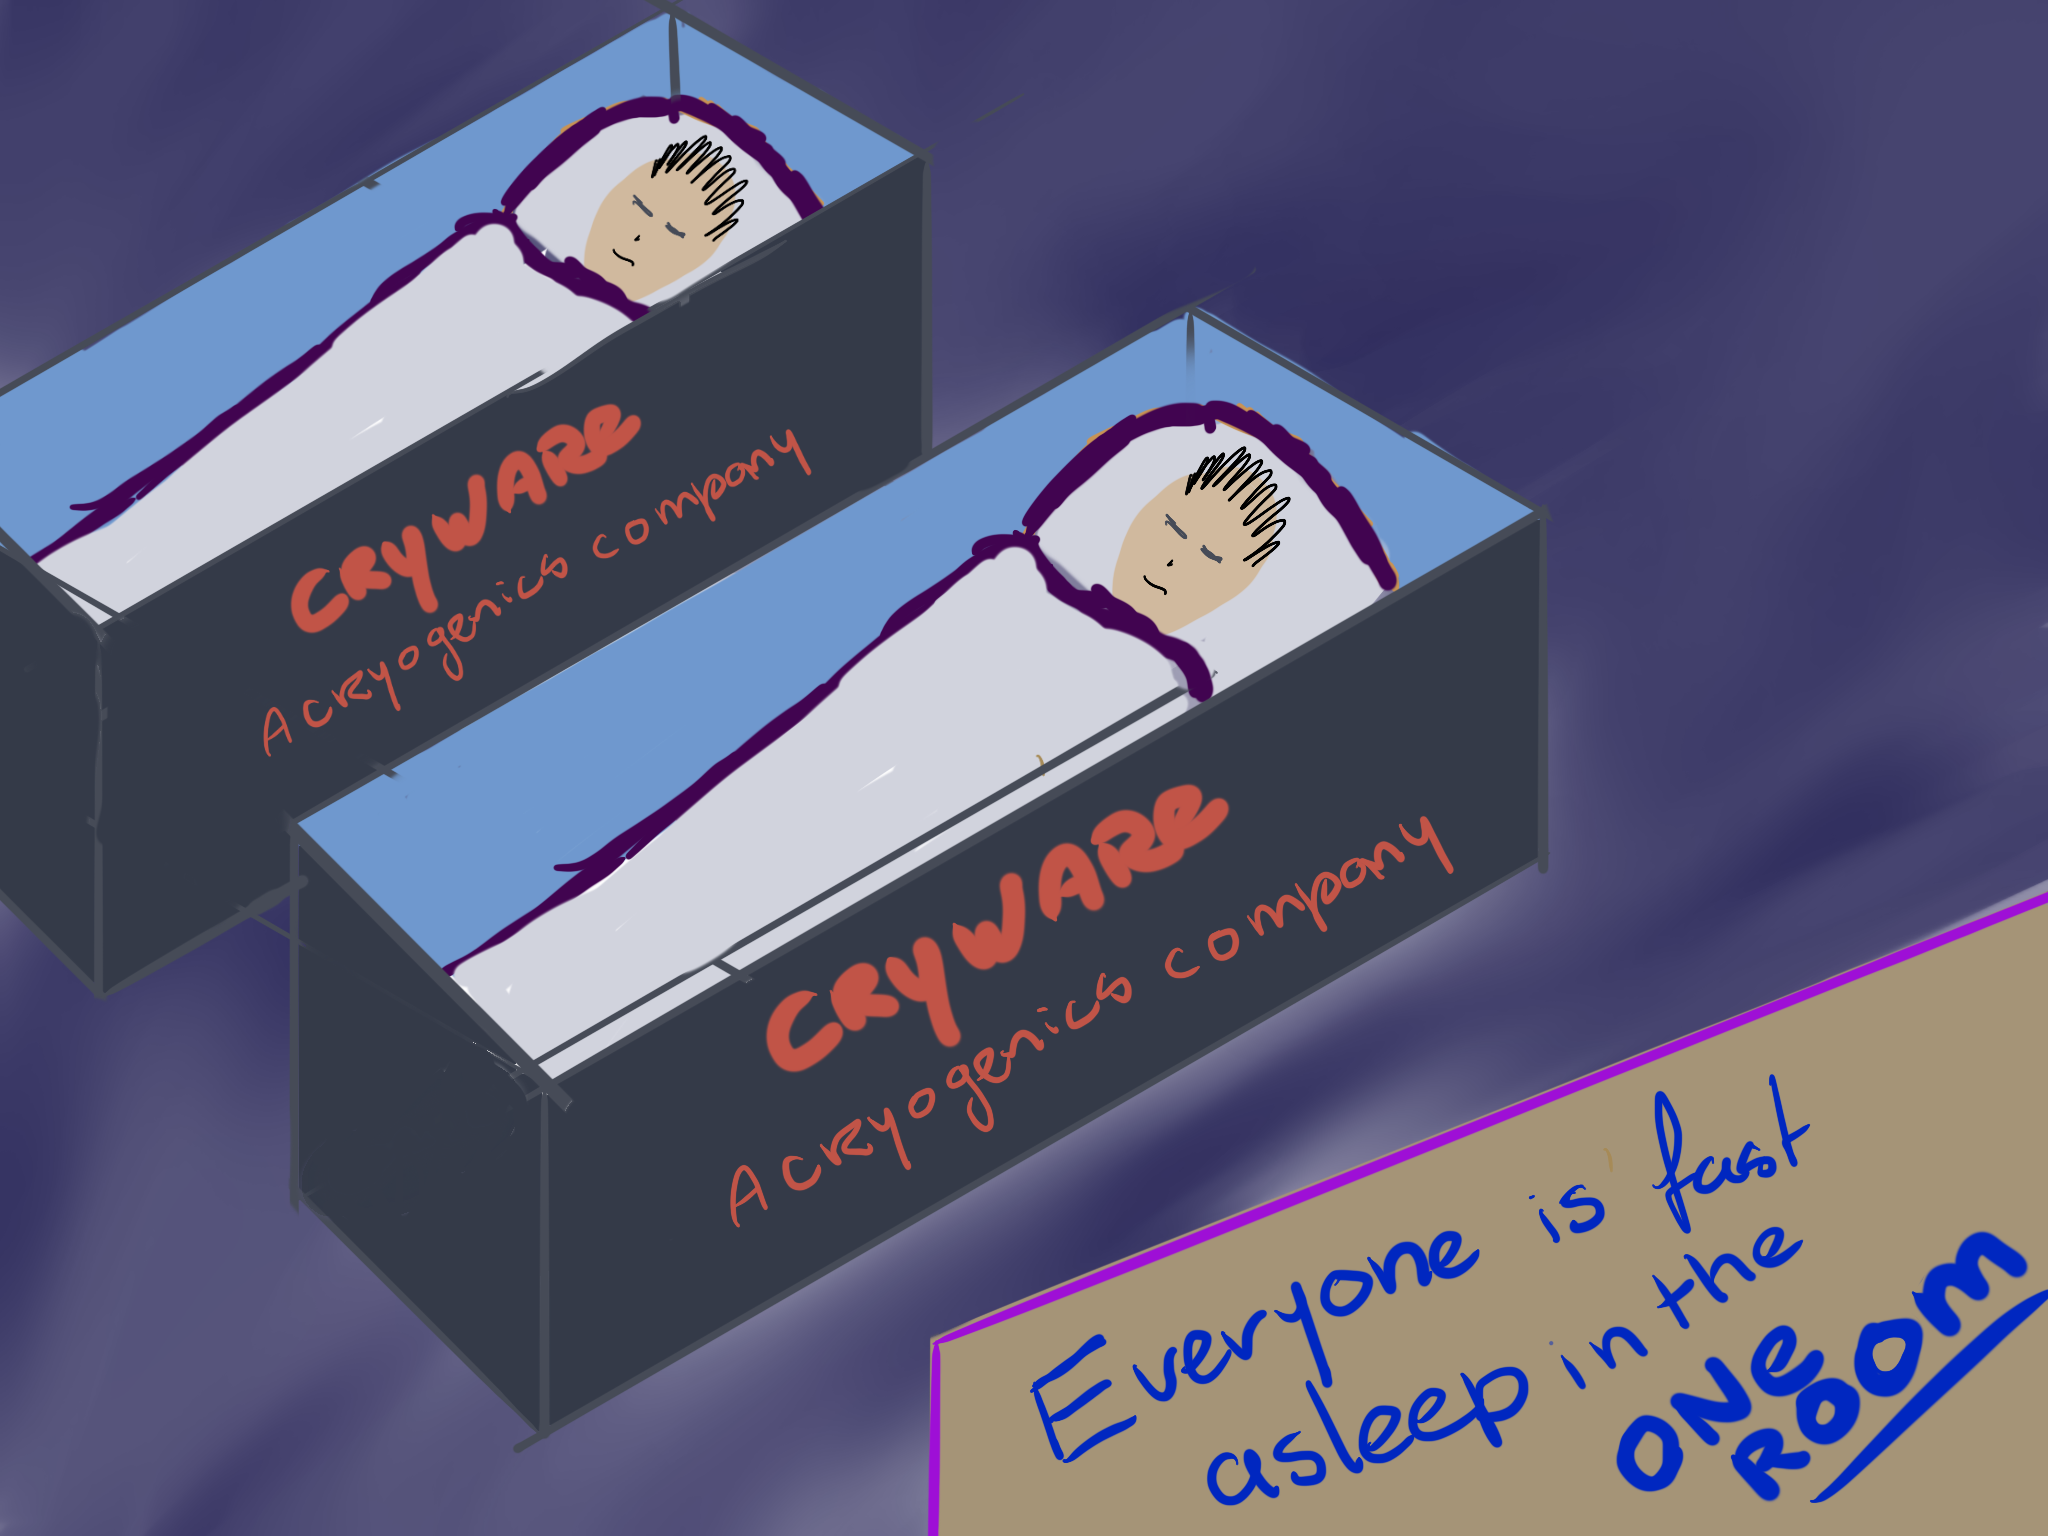 CRYWARE
A cryogenics company
CRYWARE
A cryogenics company
Everyone is fast
asleep in the
ONE
ROOM